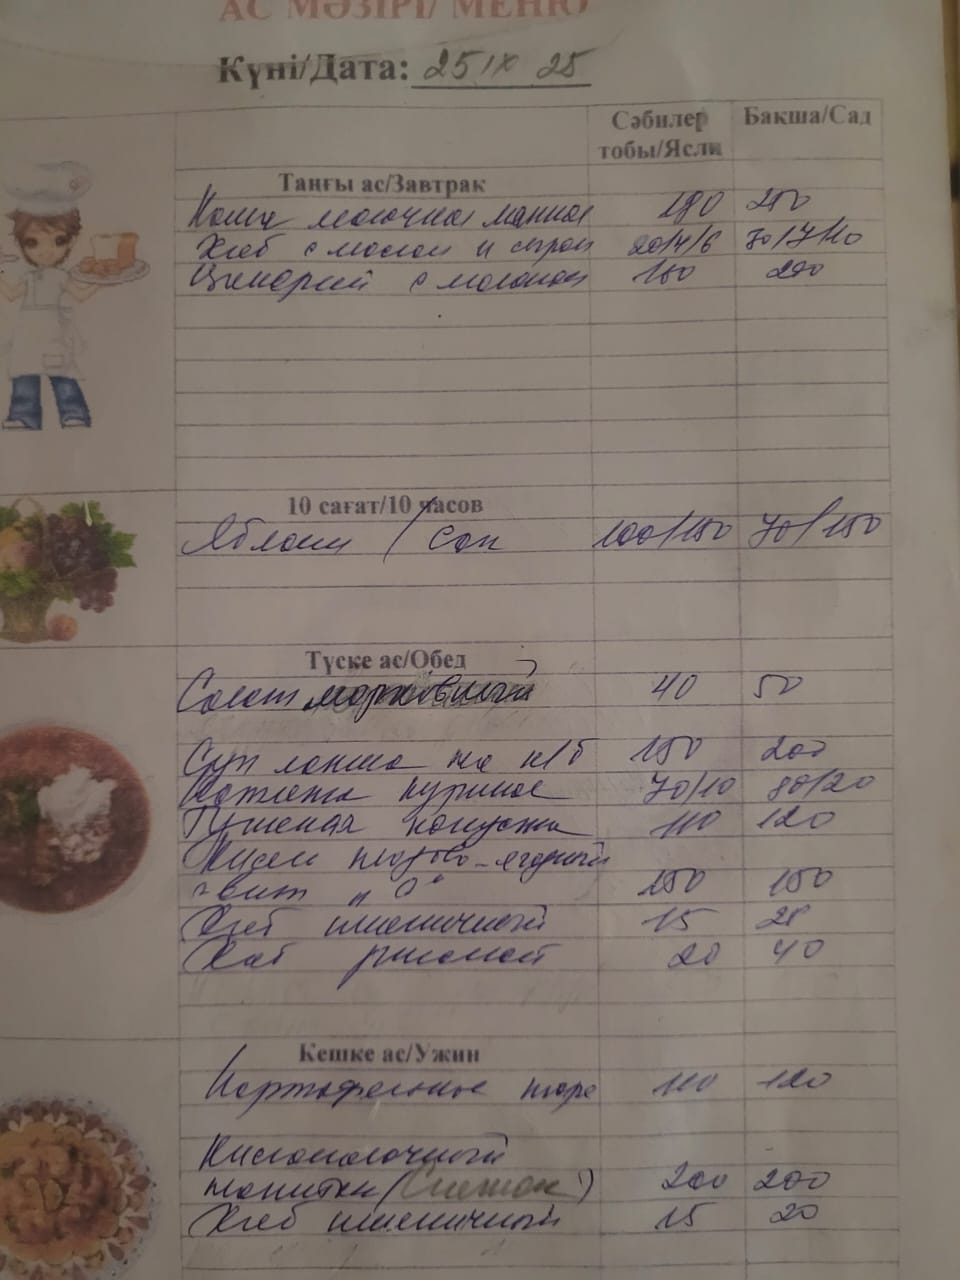 АС МӘЗІРІ/ МЕНЮ
Күні/Дата: 25 IX 25
Сәбилер тобы/Ясли Бақша/Сад
Таңғы ас/Завтрак
Каша молочная манная 180 200
Хлеб с маслом и сыром 20/4/6 30/7/10
Цикорий с молоком 150 200
10 сағат/10 часов
Яблоки / Сок 100/150 70/150
Түске ас/Обед
Салат морковный 40 50
Суп лапша на к/б 150 200
Котлета куриная 70/10 80/20
Тушеная капуста 110 120
Кисел плодово-ягодный
вит „С“ 150 150
Хлеб пшеничный 15
Хлеб ржаной 20 40
Кешке ас/Ужин
Картофельное пюре 110 120
Кисломолочный
напитки (Снежок) 200 200
Хлеб пшеничный 15 20